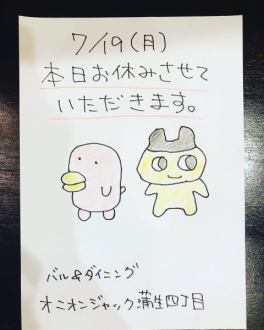 7/19(月)
本日お休みさせて
いただきます。
バル&ダイニング
オニオンジャック蒲生四丁目